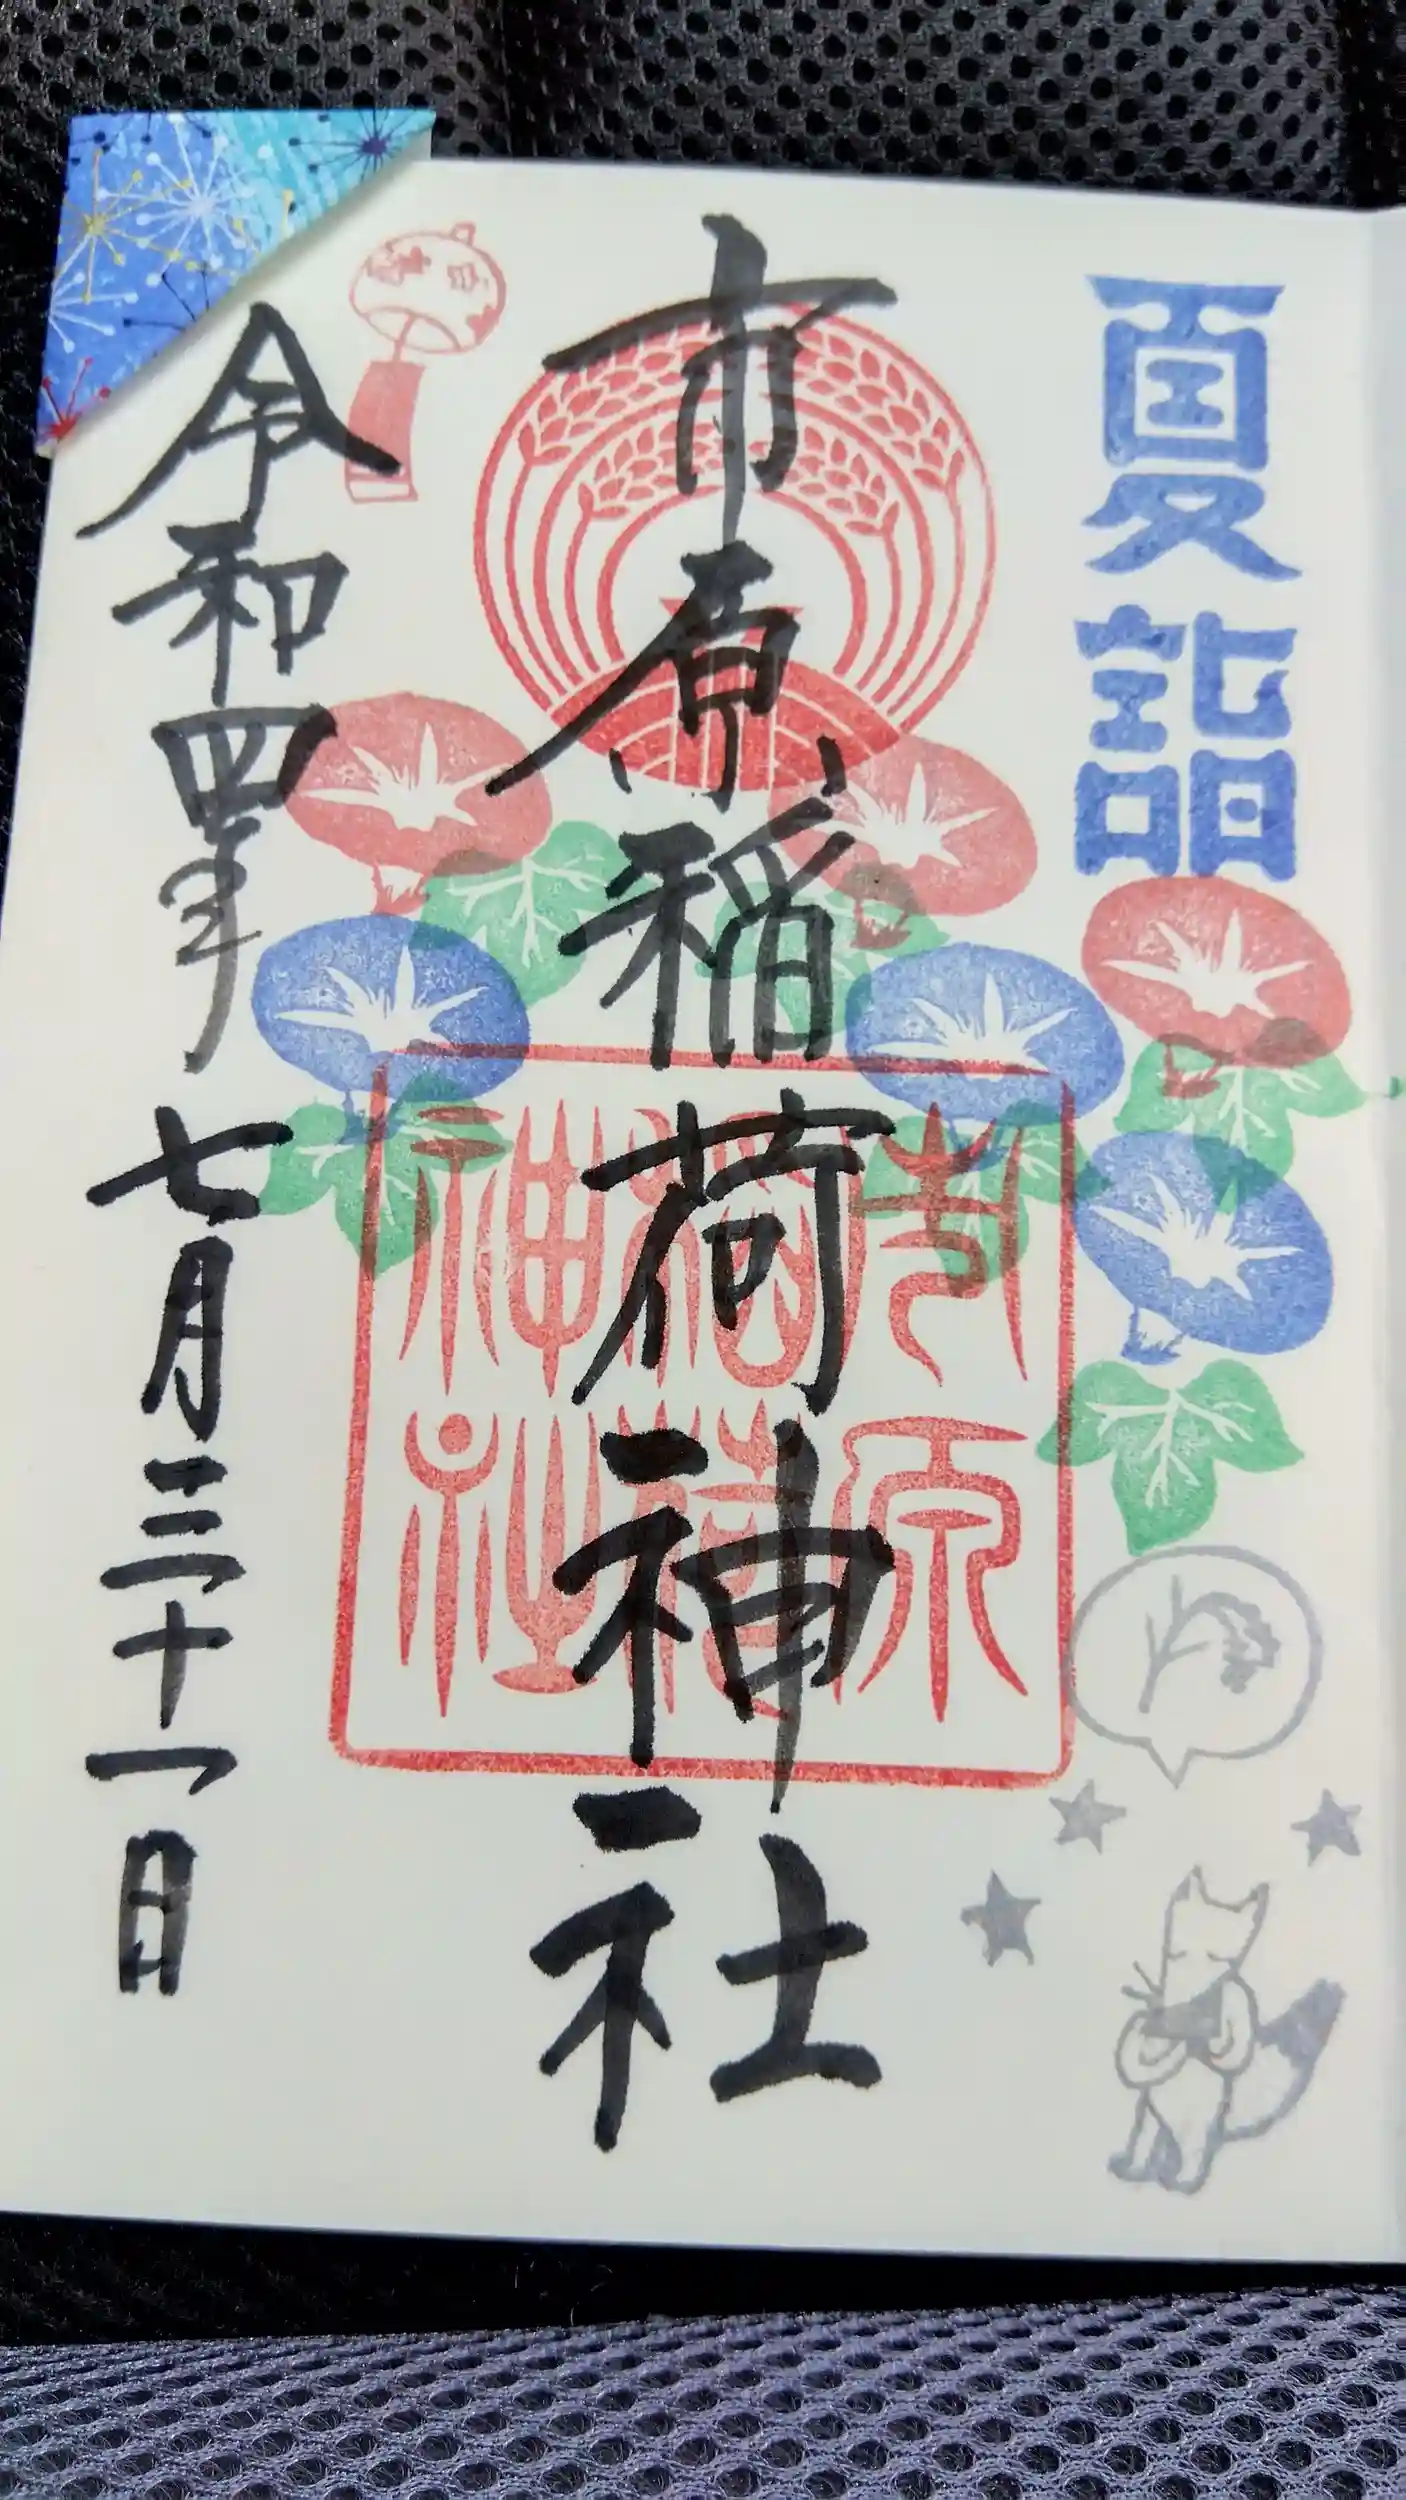 夏詣
市原稲荷神社
市原
稲荷
神社
令和四年七月三十一日